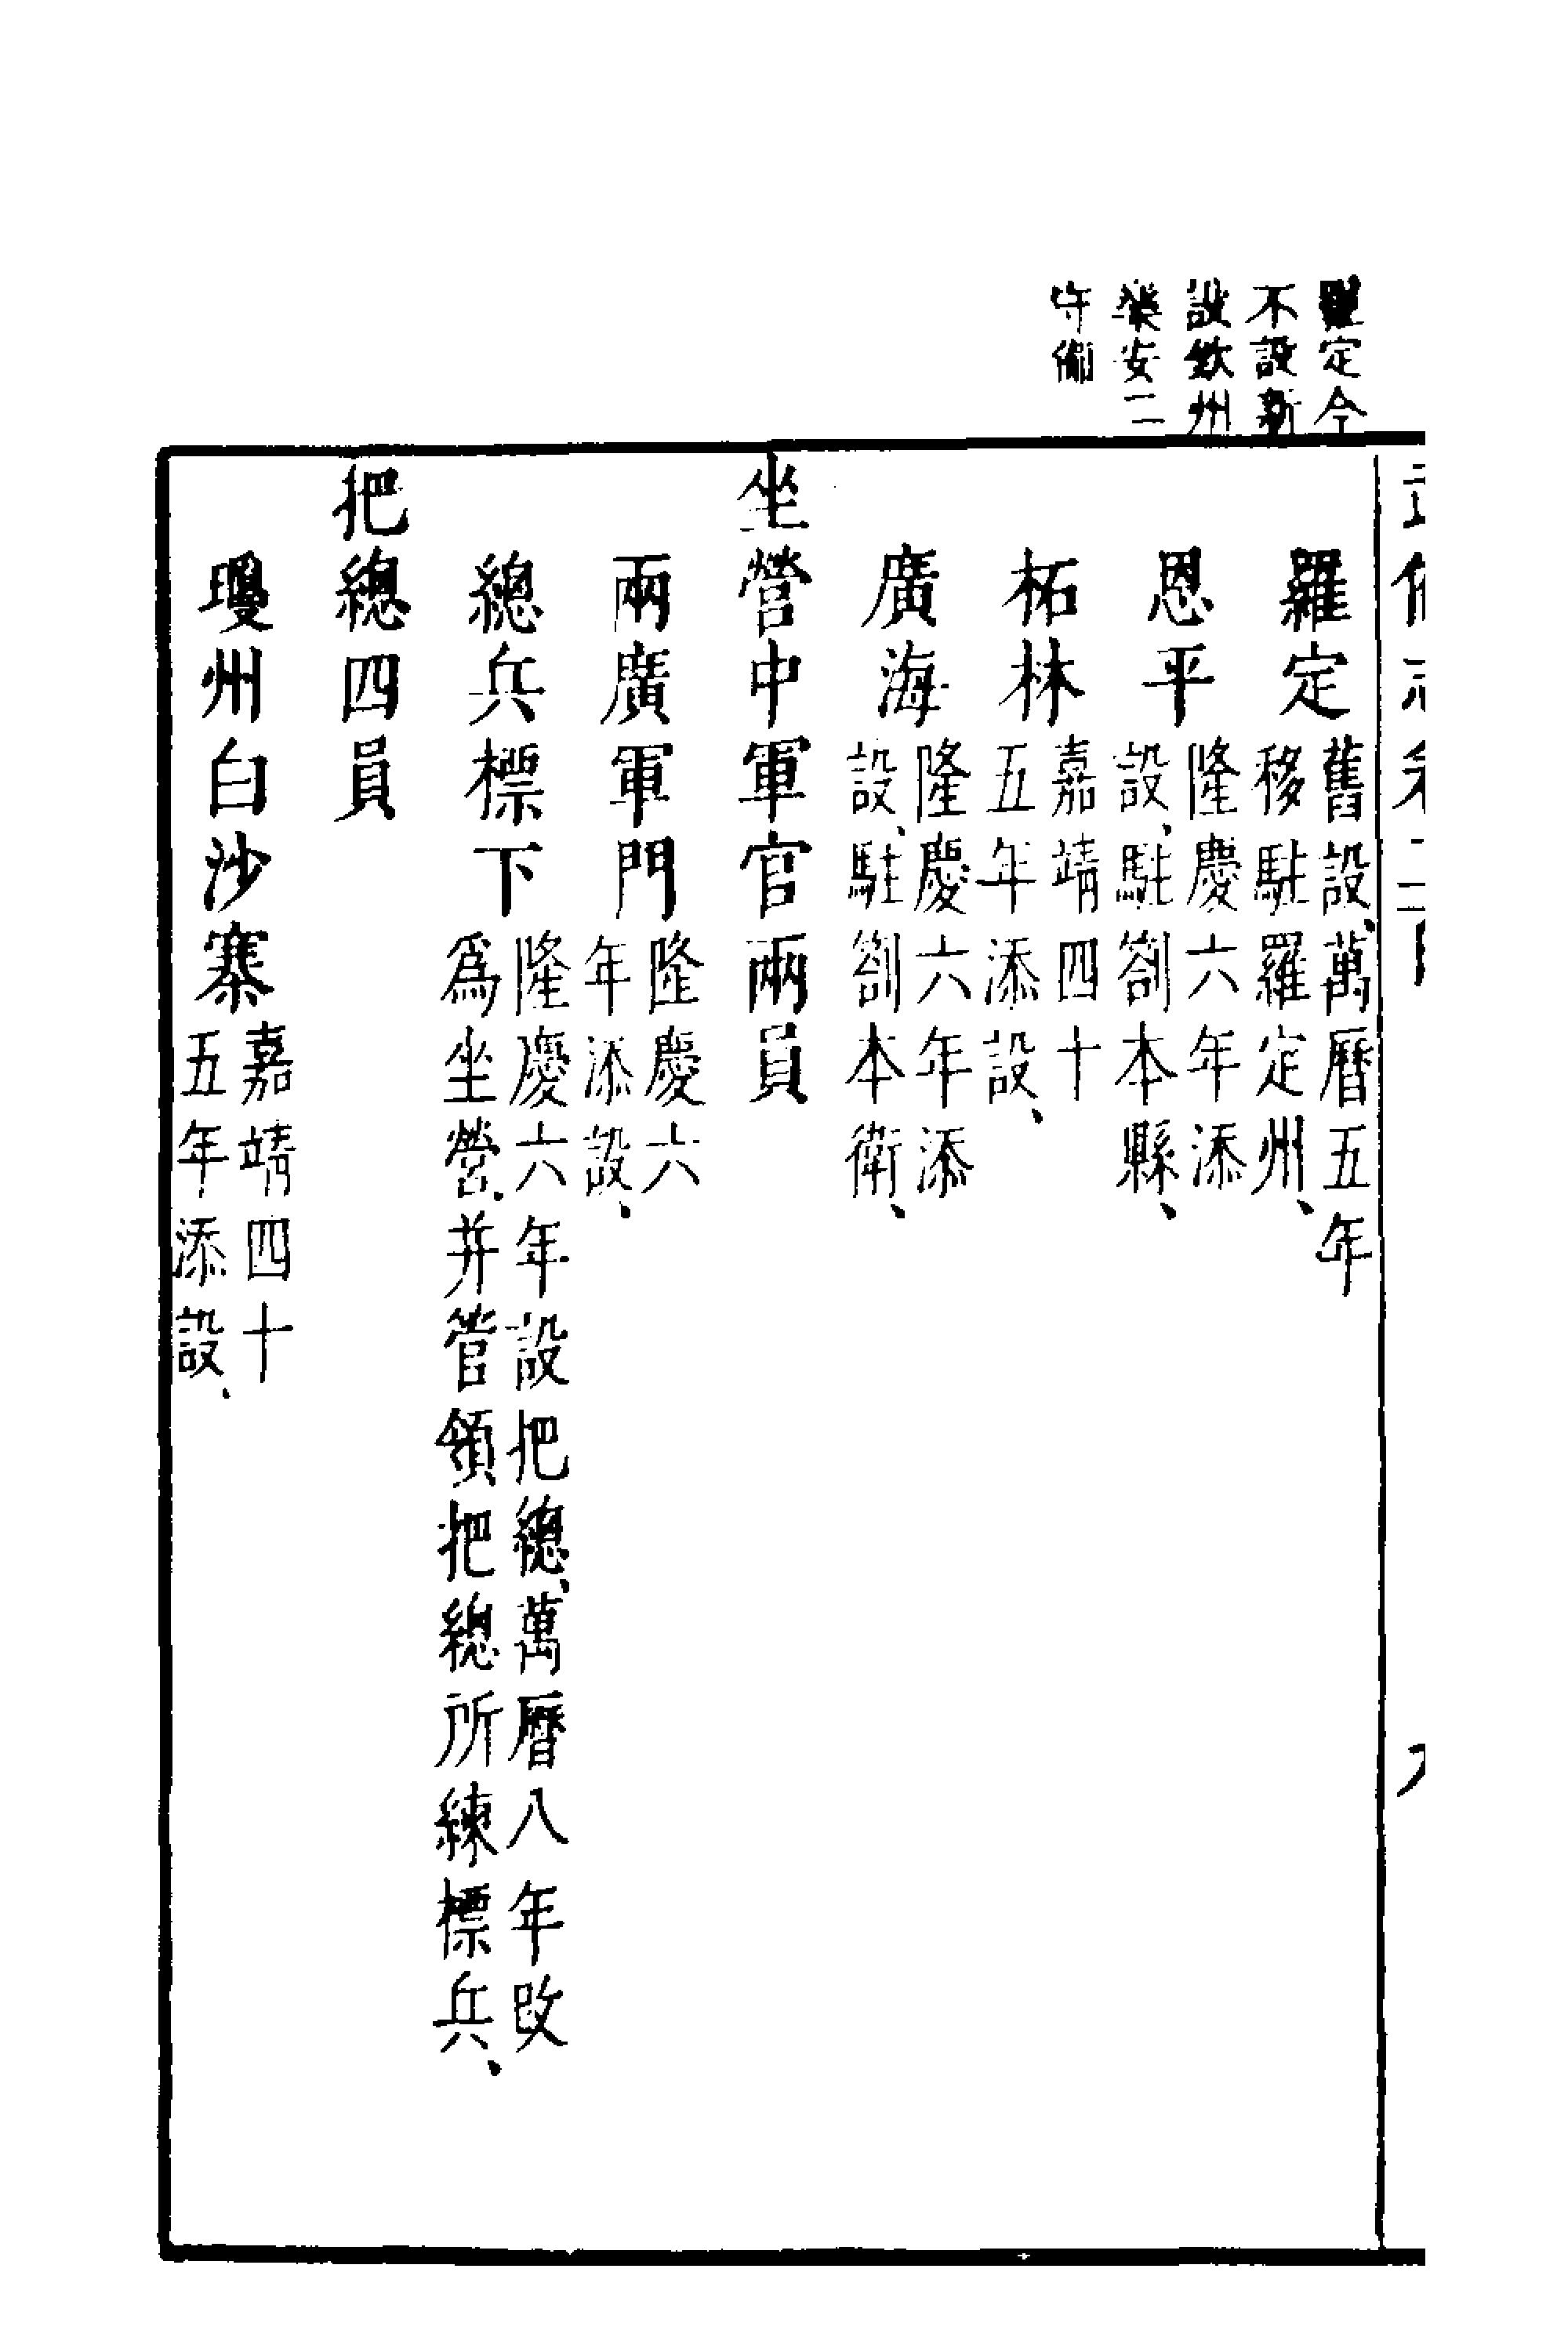 羅定今
不設新
設欽州
樂安二
守備
羅定舊設、萬曆五年
移駐羅定州、
恩平隆慶六年添
設、駐劄本縣、
柘林嘉靖四十
五年添設、
廣海隆慶六年添
設、駐劄本衛、
坐營中軍官兩員
兩廣軍門隆慶六
年添設、
總兵標下隆慶六年設把總、萬曆八年改
為坐營、并管領把總所練標兵、
把總四員
瓊州白沙寨嘉靖四十
五年添設、